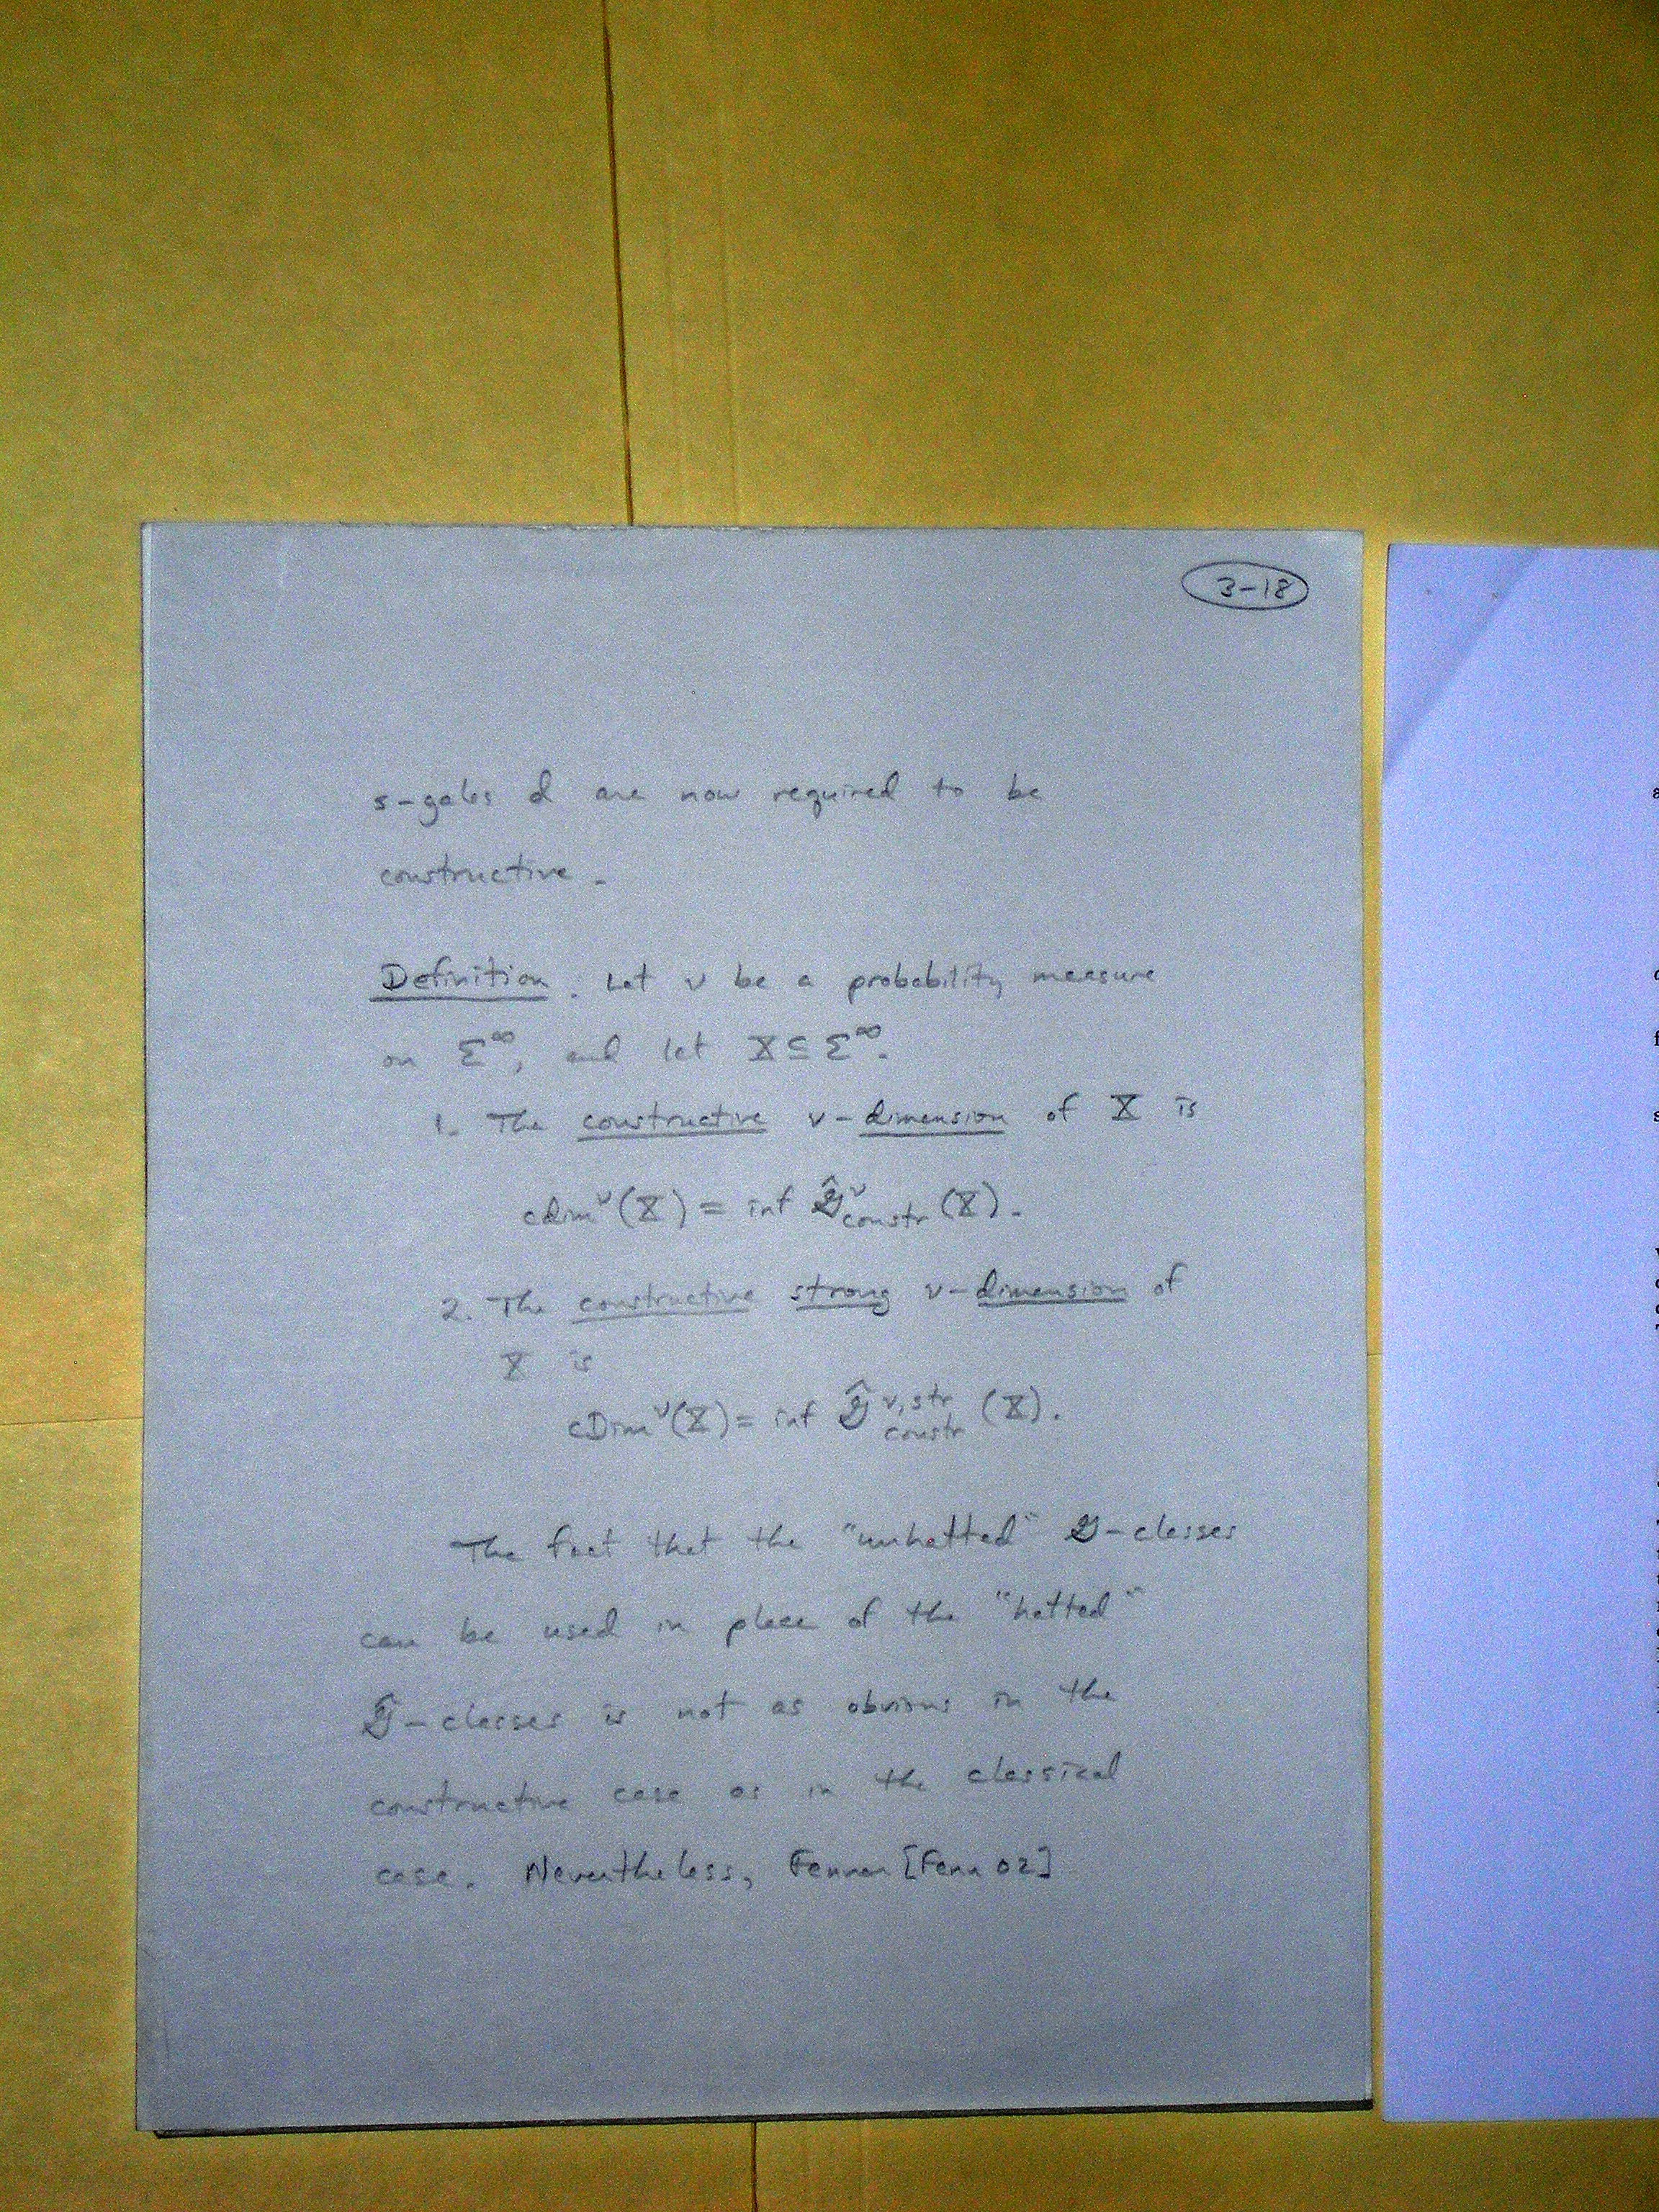 3-18
s-gales d are now required to be
constructive.
Definition. Let ν be a probability measure
on Σ^∞, and let X ⊆ Σ^∞.
1. The constructive ν-dimension of X is
cdim^ν(X) = inf 𝒢̂^ν_constr(X).
2. The constructive strong ν-dimension of
X is
cDim^ν(X) = inf 𝒢̂^{ν,str}_constr(X).
The fact that the "unhatted" 𝒢-classes
can be used in place of the "hatted"
𝒢̂-classes is not as obvious in the
constructive case as in the classical
case. Nevertheless, Fenner [Fenn02]